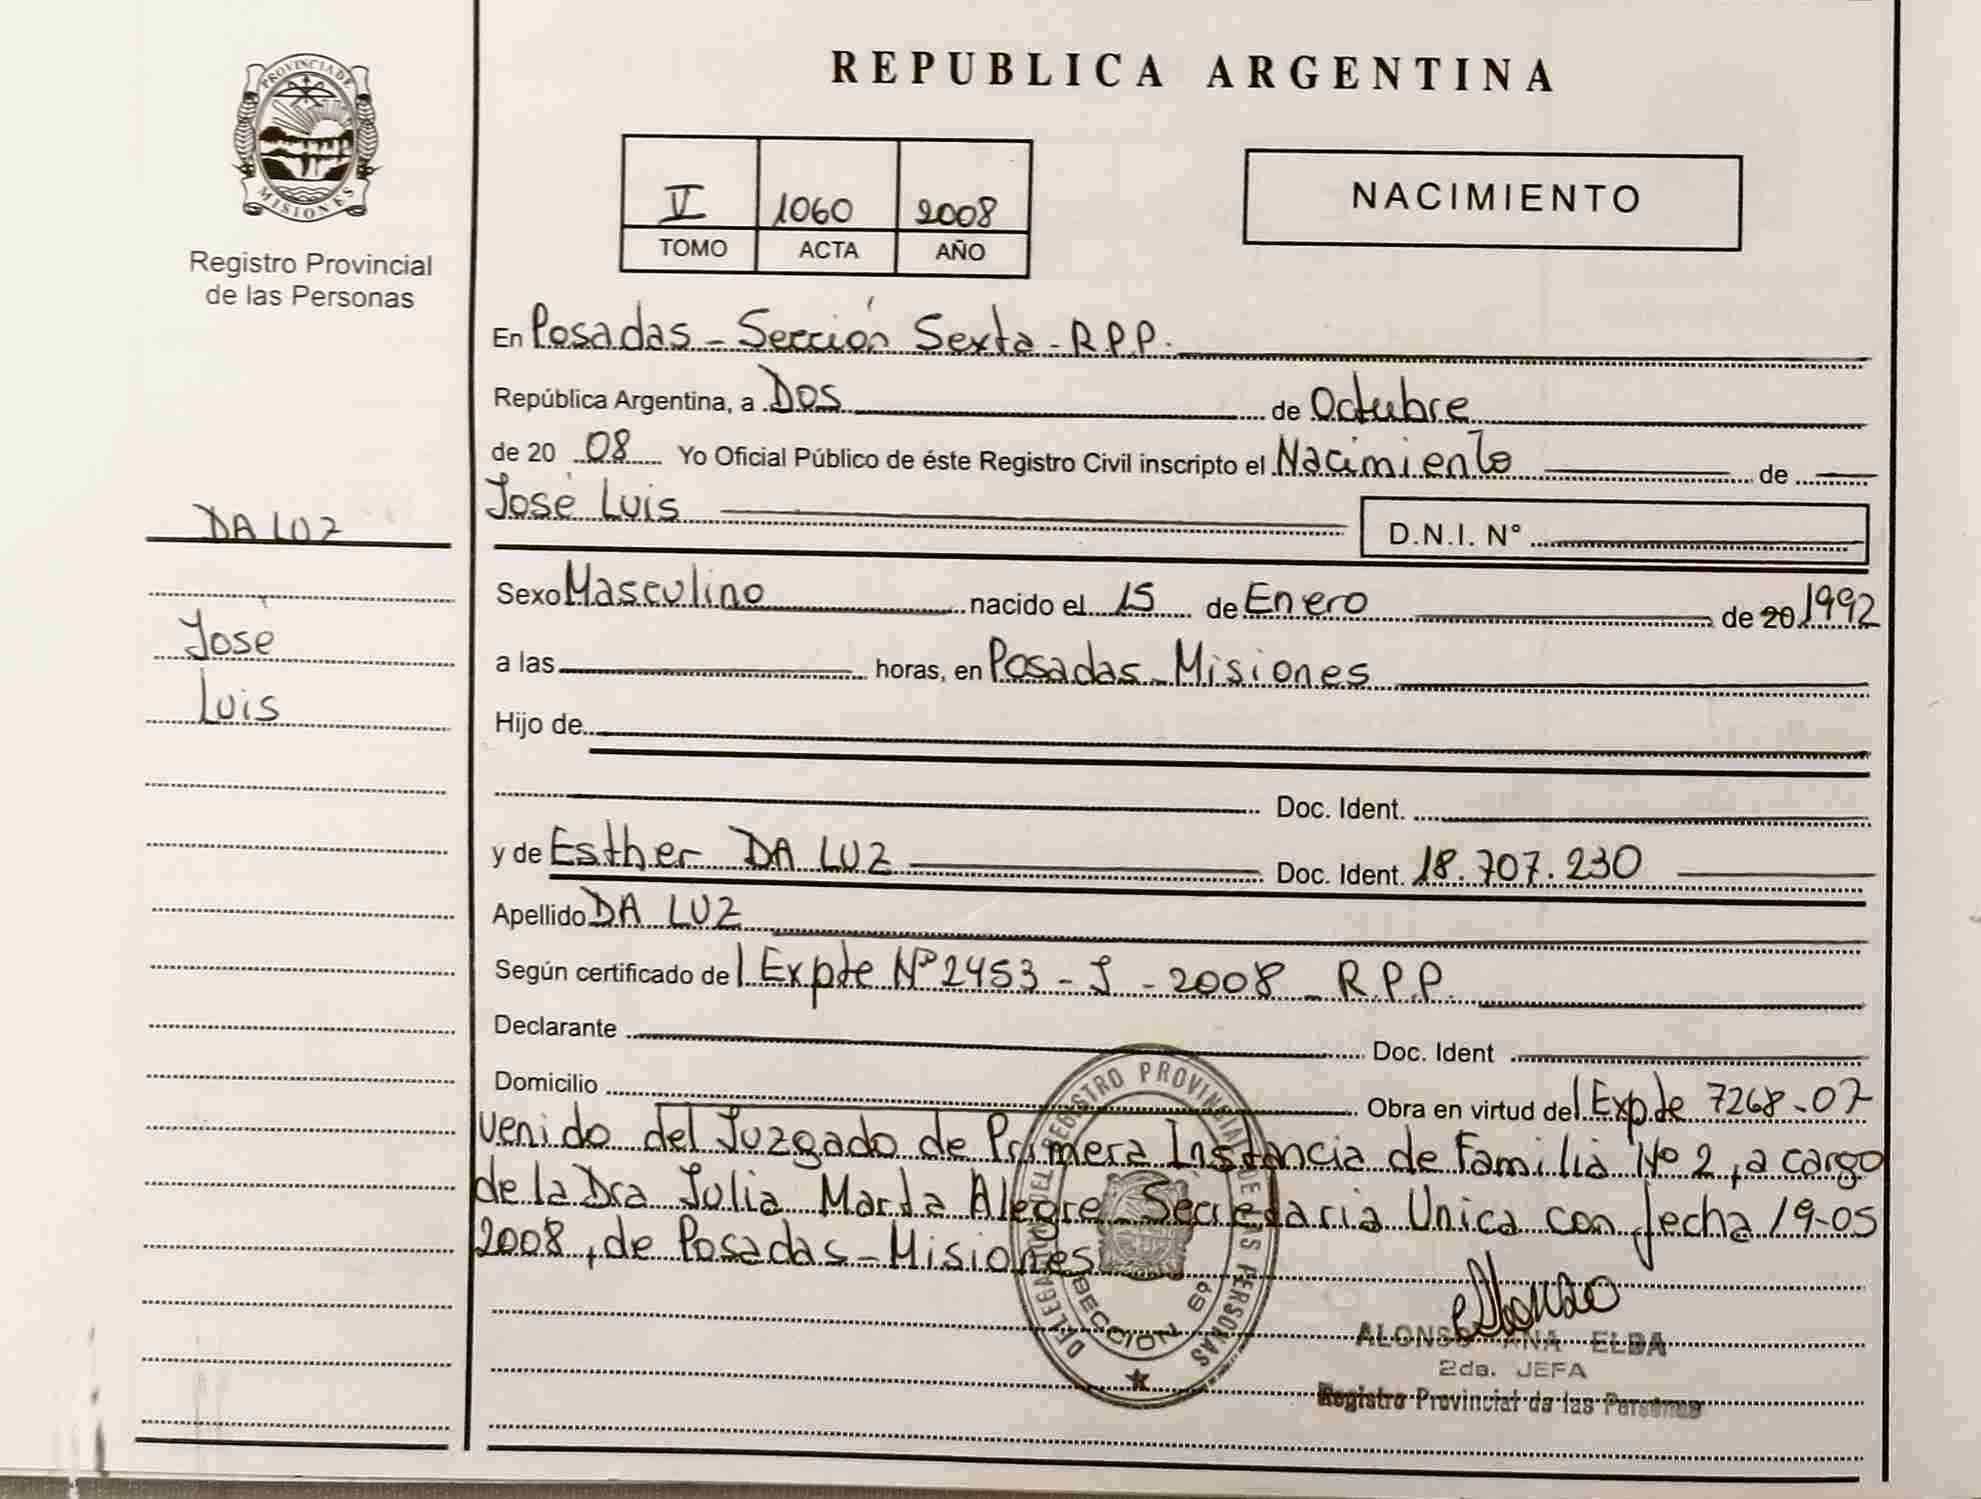 REPUBLICA ARGENTINA
PROVINCIA DE
MISIONES
Registro Provincial
de las Personas
V 1060 2008
TOMO ACTA AÑO
NACIMIENTO
DA LUZ
José
Luis
En Posadas - Sección Sexta - R.P.P.
República Argentina, a Dos de Octubre
de 20 08 Yo Oficial Público de éste Registro Civil inscripto el Nacimiento de
José Luis D.N.I. N°
Sexo Masculino nacido el 15 de Enero de 20 1992
a las horas, en Posadas - Misiones
Hijo de
Doc. Ident.
y de Esther DA LUZ Doc. Ident. 18.707.230
Apellido DA LUZ
Según certificado de l Expte Nº 2453 - J - 2008 - R.P.P.
Declarante Doc. Ident
Domicilio Obra en virtud del Expte 7268-07
venido del Juzgado de Primera Instancia de Familia Nº 2, a cargo
de la Dra Julia Marta Alegre - Secretaria Unica con fecha 19-05
2008, de Posadas - Misiones
DELEGACION DEL REGISTRO PROVINCIAL DE LAS PERSONAS
SECCION 6ª
ALONSO ANA ELBA
2da. JEFA
Registro Provincial de las Personas